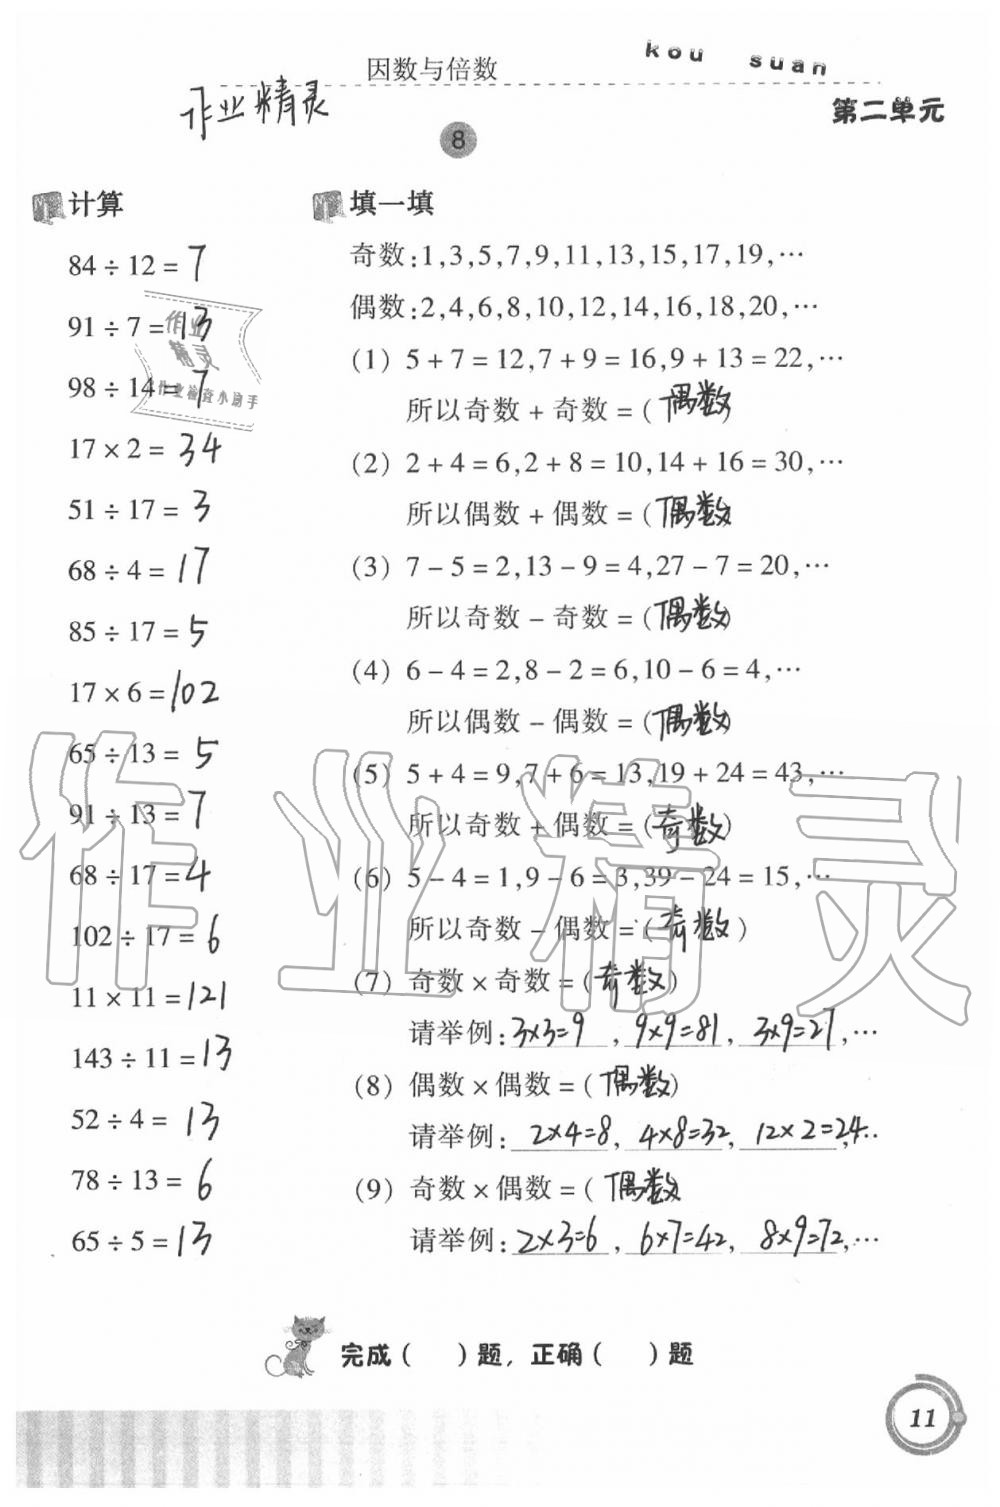 kou suan
因数与倍数
作业精灵
第二单元
8
计算
84÷12=7
91÷7=13
98÷14=7
17×2=34
51÷17=3
68÷4=17
85÷17=5
17×6=102
65÷13=5
91÷13=7
68÷17=4
102÷17=6
11×11=121
143÷11=13
52÷4=13
78÷13=6
65÷5=13
作业
精灵
作业检查小助手
填一填
奇数:1,3,5,7,9,11,13,15,17,19,…
偶数:2,4,6,8,10,12,14,16,18,20,…
(1) 5+7=12,7+9=16,9+13=22,…
所以奇数+奇数=(偶数)
(2) 2+4=6,2+8=10,14+16=30,…
所以偶数+偶数=(偶数)
(3) 7-5=2,13-9=4,27-7=20,…
所以奇数-奇数=(偶数)
(4) 6-4=2,8-2=6,10-6=4,…
所以偶数-偶数=(偶数)
(5) 5+4=9,7+6=13,19+24=43,…
所以奇数+偶数=(奇数)
(6) 5-4=1,9-6=3,39-24=15,…
所以奇数-偶数=(奇数)
(7) 奇数×奇数=(奇数)
请举例:3×3=9, 9×9=81, 3×9=27,…
(8) 偶数×偶数=(偶数)
请举例:2×4=8, 4×8=32, 12×2=24,…
(9) 奇数×偶数=(偶数
请举例:2×3=6, 6×7=42, 8×9=72,…
作业精灵
完成( )题,正确( )题
11